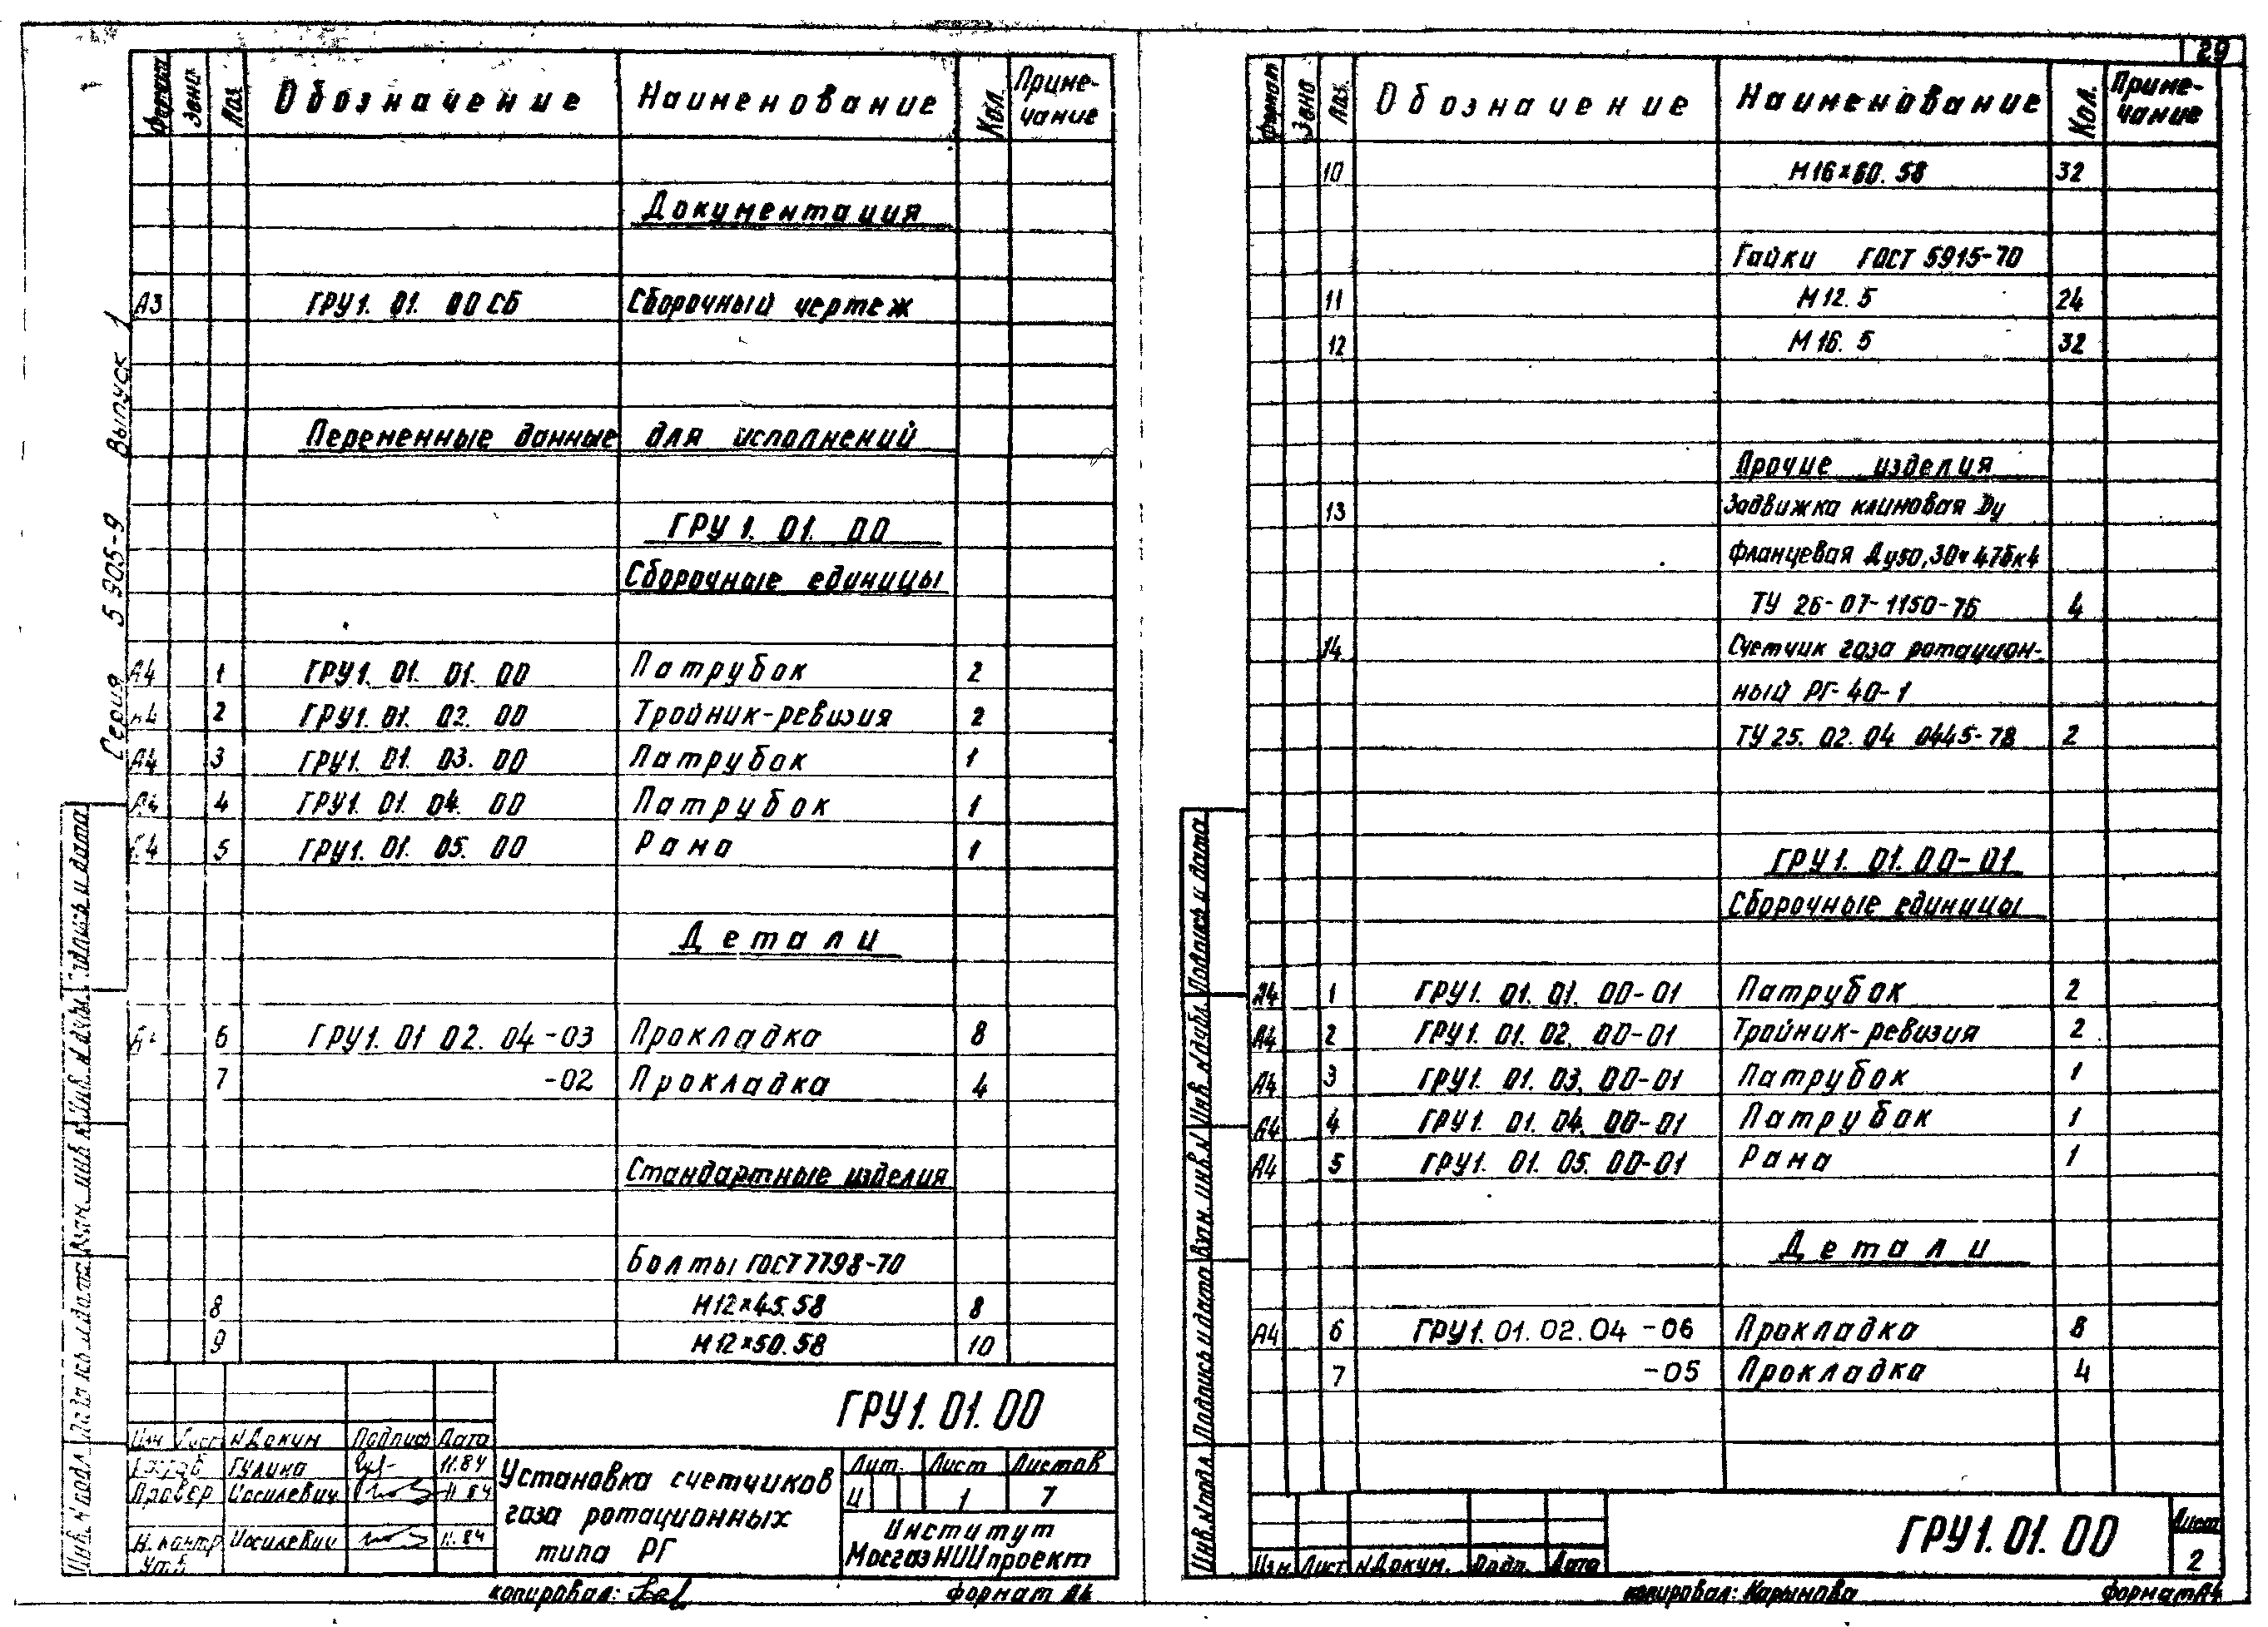 29
Серия 5 905-9 Выпуск 1
Формат Зона Поз. Обозначение Наименование Кол. Приме-
чание
Документация
А3 ГРУ1. 01. 00 СБ Сборочный чертеж
Переменные данные для исполнений
ГРУ 1. 01. 00
Сборочные единицы
А4 1 ГРУ1. 01. 01. 00 Патрубок 2
А4 2 ГРУ1. 01. 02. 00 Тройник-ревизия 2
А4 3 ГРУ1. 01. 03. 00 Патрубок 1
А4 4 ГРУ1. 01. 04. 00 Патрубок 1
А4 5 ГРУ1. 01. 05. 00 Рама 1
Детали
6 ГРУ1. 01 02. 04 -03 Прокладка 8
7 -02 Прокладка 4
Стандартные изделия
Болты ГОСТ 7798-70
8 М12×45.58 8
9 М12×50.58 10
ГРУ1. 01. 00
Изм Лист N Докум Подпись Дата
Разраб Гулина 11.84
Провер Иосилевич 11 84
Н. контр Иосилевич 11.84
Утв.
Установка счетчиков
газа ротационных
типа РГ
Лит. Лист Листов
И 1 7
Институт
МосгазНИИпроект
Инв. N подл. Подпись и дата Взам. инв. N Инв. N дубл. Подпись и дата
копировал: формат А4
Формат Зона Поз. Обозначение Наименование Кол. Приме-
чание
10 М16×60. 58 32
Гайки ГОСТ 5915-70
11 М12. 5 24
12 М16. 5 32
Прочие изделия
13 Задвижка клиновая Ду
фланцевая Ду50, 30ч 47бк4
ТУ 26-07-1150-76 4
14 Счетчик газа ротацион-
ный РГ-40-1
ТУ 25. 02. 04 0445-78 2
ГРУ1. 01. 00-01
Сборочные единицы
А4 1 ГРУ1. 01. 01. 00-01 Патрубок 2
А4 2 ГРУ1. 01. 02. 00-01 Тройник-ревизия 2
А4 3 ГРУ1. 01. 03. 00-01 Патрубок 1
А4 4 ГРУ1. 01. 04. 00-01 Патрубок 1
А4 5 ГРУ1. 01. 05. 00-01 Рама 1
Детали
А4 6 ГРУ1. 01. 02. 04 -06 Прокладка 8
7 -05 Прокладка 4
Инв. N подл. Подпись и дата Взам. инв. N Инв. N дубл. Подпись и дата
Изм Лист N Докум. Подп. Дата
ГРУ1. 01. 00
Лист
2
копировал: Карынова формат А4